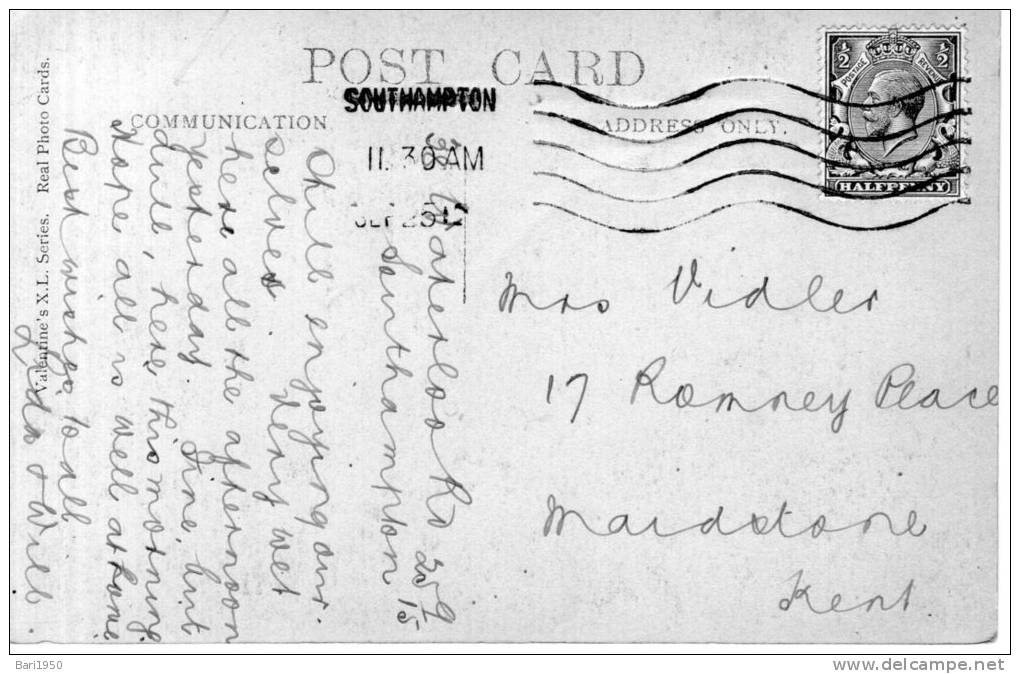 POST CARD
SOUTHAMPTON
COMMUNICATION
ADDRESS ONLY.
11.30 AM
SEP 25 15
½ ½
POSTAGE REVENUE
HALFPENNY
Valentine's X.L. Series. Real Photo Cards.
Waterloo Rd 25/9/15
Southampton
Still enjoying our
selves. Very wet
here all the afternoon
yesterday. Fine, but
dull, here, this morning
Hope all is well at home
Best wishes to all
& Will
Mrs Vidler
17 Romney Place
Maidstone
Kent.
Bari1950
delcampe.net